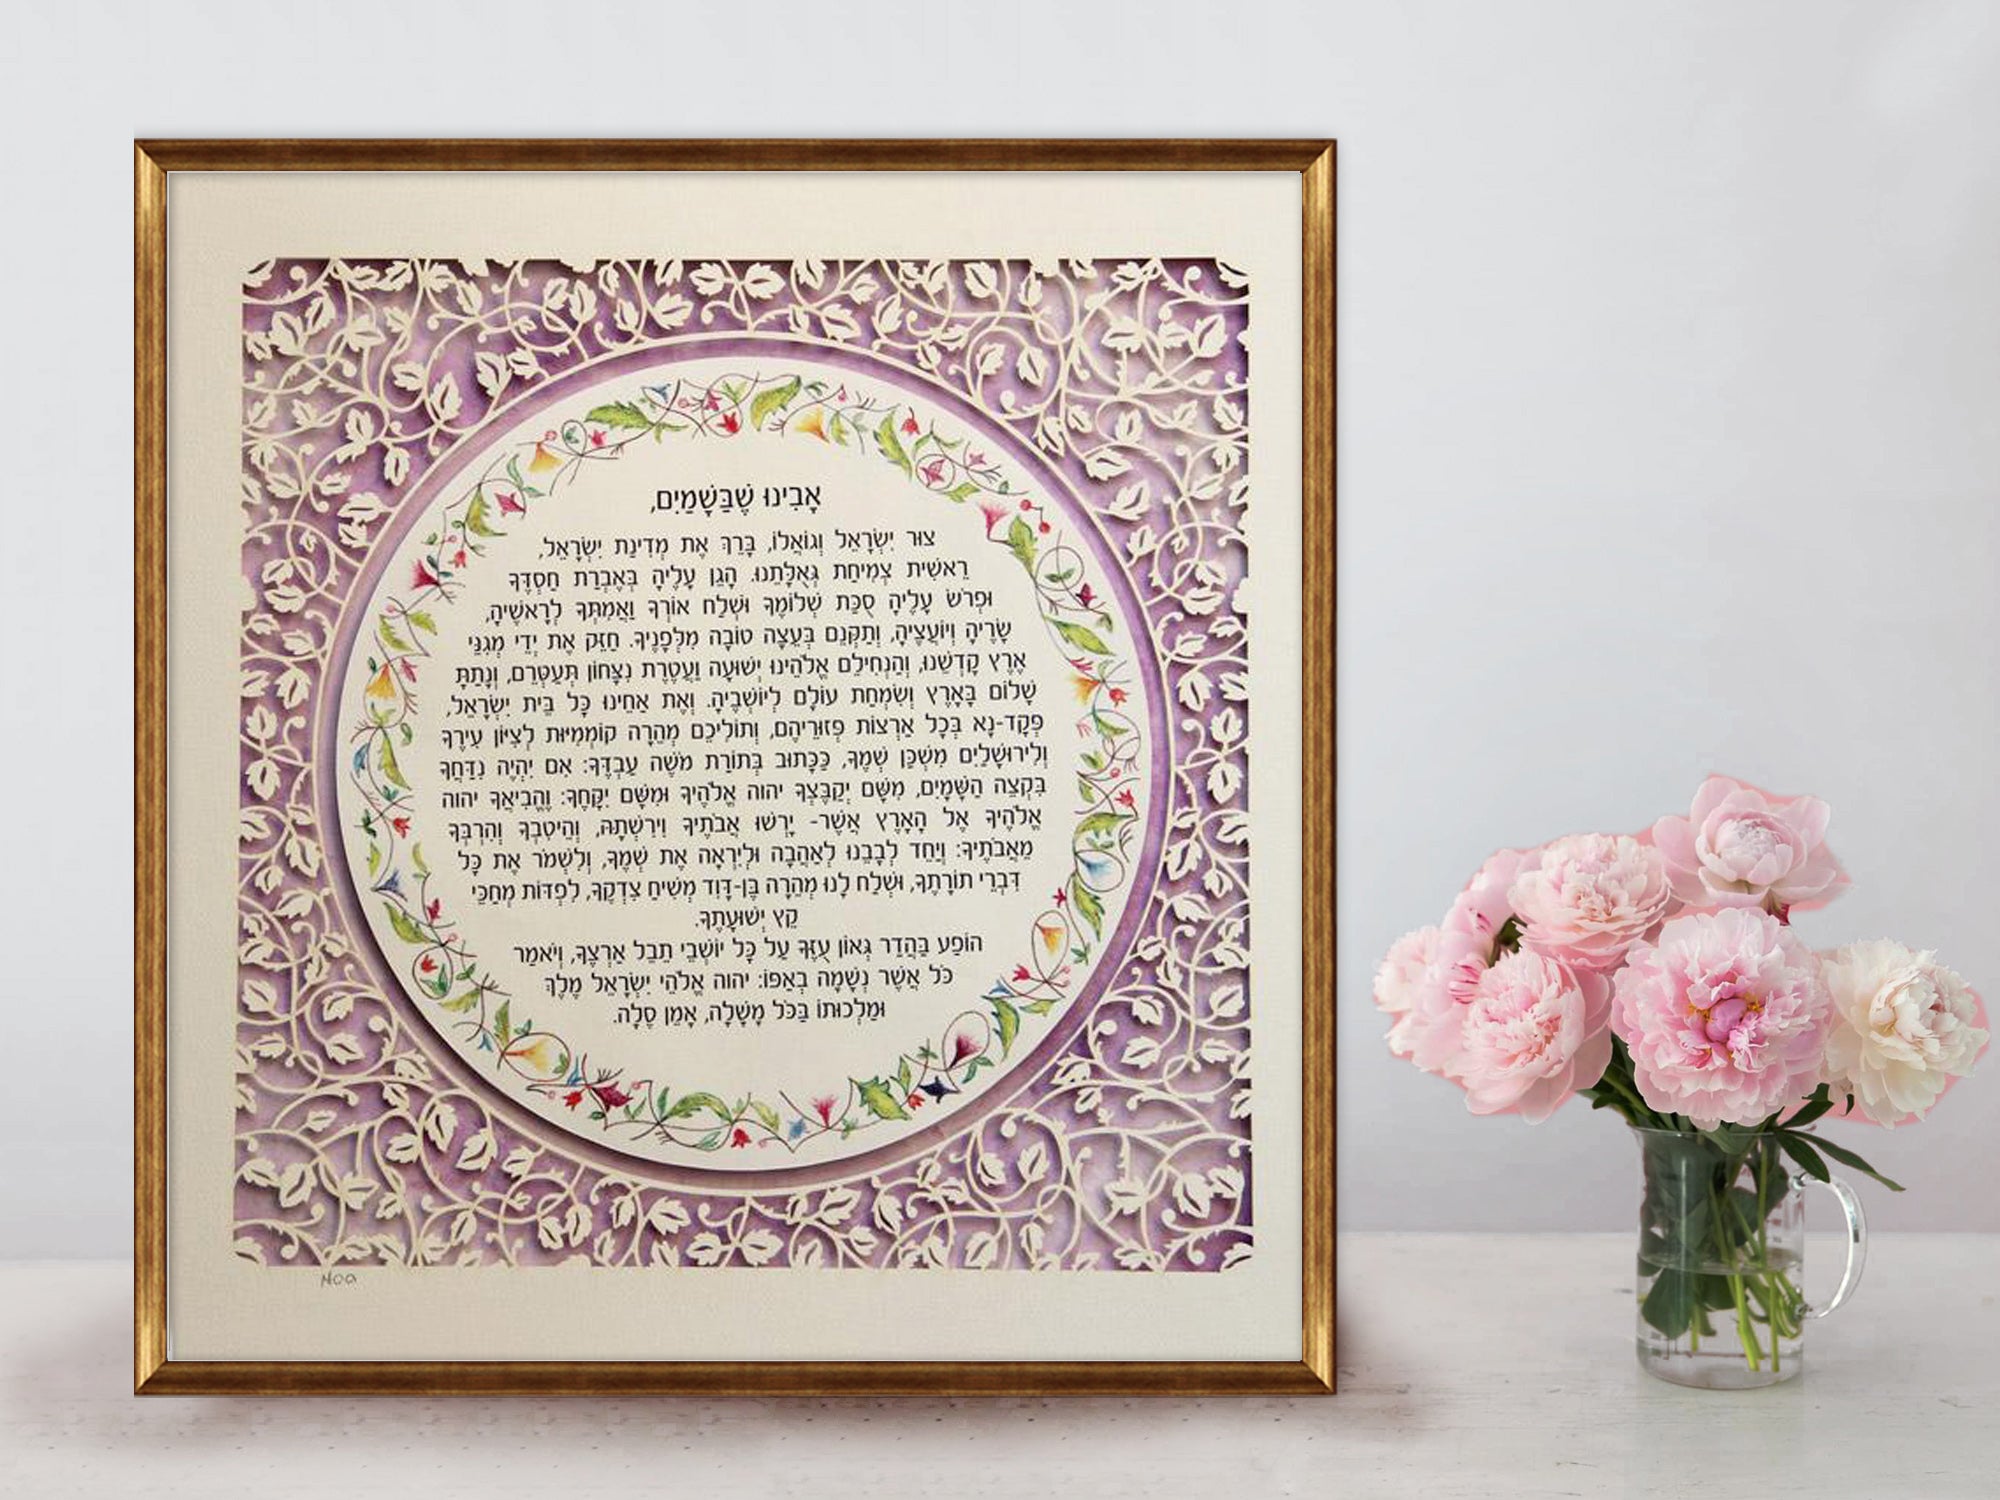 אָבִינוּ שֶׁבַּשָּׁמַיִם,
צוּר יִשְׂרָאֵל וְגוֹאֲלוֹ, בָּרֵךְ אֶת מְדִינַת יִשְׂרָאֵל,
רֵאשִׁית צְמִיחַת גְּאֻלָּתֵנוּ. הָגֵן עָלֶיהָ בְּאֶבְרַת חַסְדֶּךָ
וּפְרֹשׂ עָלֶיהָ סֻכַּת שְׁלוֹמֶךָ וּשְׁלַח אוֹרְךָ וַאֲמִתְּךָ לְרָאשֶׁיהָ,
שָׂרֶיהָ וְיוֹעֲצֶיהָ, וְתַקְּנֵם בְּעֵצָה טוֹבָה מִלְּפָנֶיךָ. חַזֵּק אֶת יְדֵי מְגִנֵּי
אֶרֶץ קָדְשֵׁנוּ, וְהַנְחִילֵם אֱלֹהֵינוּ יְשׁוּעָה וַעֲטֶרֶת נִצָּחוֹן תְּעַטְּרֵם, וְנָתַתָּ
שָׁלוֹם בָּאָרֶץ וְשִׂמְחַת עוֹלָם לְיוֹשְׁבֶיהָ. וְאֶת אַחֵינוּ כָּל בֵּית יִשְׂרָאֵל,
פְּקָד-נָא בְּכָל אַרְצוֹת פְּזוּרֵיהֶם, וְתוֹלִיכֵם מְהֵרָה קוֹמְמִיּוּת לְצִיּוֹן עִירֶךָ
וְלִירוּשָׁלַיִם מִשְׁכַּן שְׁמֶךָ, כַּכָּתוּב בְּתוֹרַת מֹשֶׁה עַבְדֶּךָ: אִם יִהְיֶה נִדַּחֲךָ
בִּקְצֵה הַשָּׁמָיִם, מִשָּׁם יְקַבֶּצְךָ יהוה אֱלֹהֶיךָ וּמִשָּׁם יִקָּחֶךָ: וֶהֱבִיאֲךָ יהוה
אֱלֹהֶיךָ אֶל הָאָרֶץ אֲשֶׁר- יָרְשׁוּ אֲבֹתֶיךָ וִירִשְׁתָּהּ, וְהֵיטִבְךָ וְהִרְבְּךָ
מֵאֲבֹתֶיךָ: וְיַחֵד לְבָבֵנוּ לְאַהֲבָה וּלְיִרְאָה אֶת שְׁמֶךָ, וְלִשְׁמֹר אֶת כָּל
דִּבְרֵי תוֹרָתֶךָ, וּשְׁלַח לָנוּ מְהֵרָה בֶּן-דָּוִד מְשִׁיחַ צִדְקֶךָ, לִפְדּוֹת מְחַכֵּי
קֵץ יְשׁוּעָתֶךָ.
הוֹפַע בַּהֲדַר גְּאוֹן עֻזֶּךָ עַל כָּל יוֹשְׁבֵי תֵבֵל אַרְצֶךָ, וְיֹאמַר
כֹּל אֲשֶׁר נְשָׁמָה בְאַפּוֹ: יהוה אֱלֹהֵי יִשְׂרָאֵל מֶלֶךְ
וּמַלְכוּתוֹ בַּכֹּל מָשָׁלָה, אָמֵן סֶלָה.
Noa